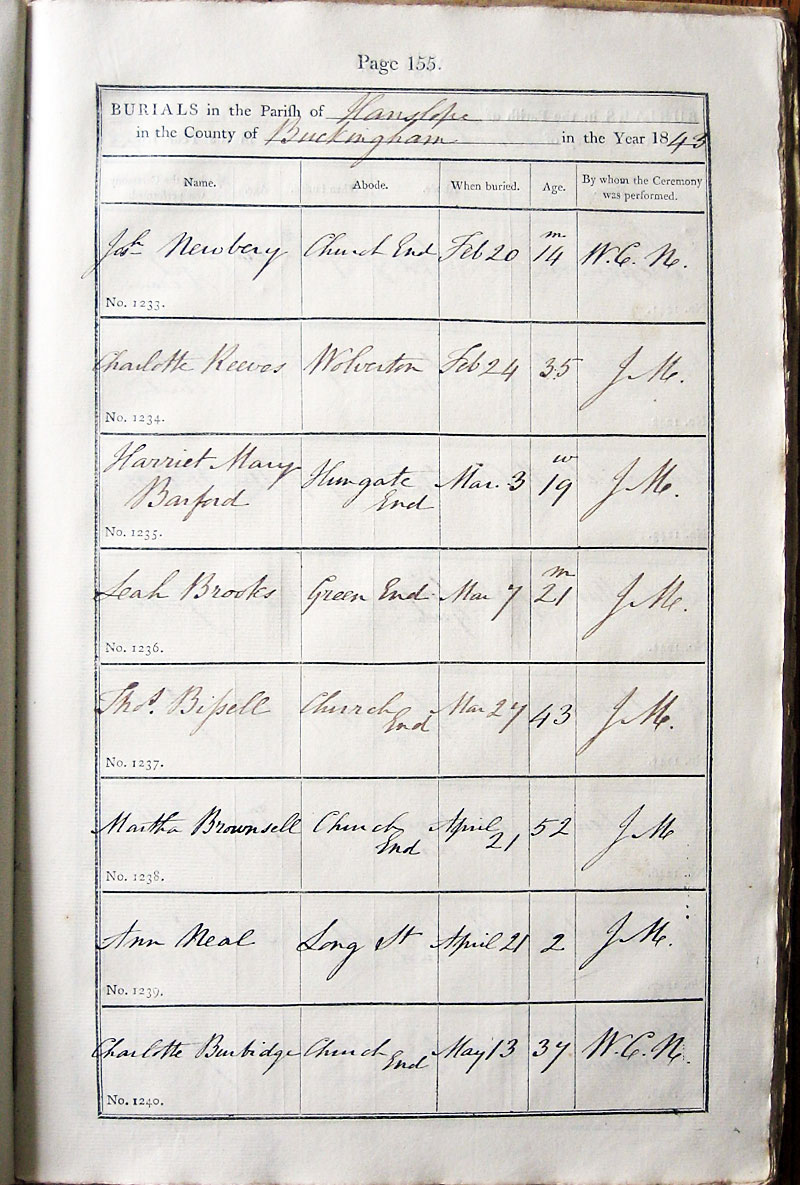 Page 155.
BURIALS in the Parish of Hanslope
in the County of Buckingham in the Year 1843
Name. Abode. When buried. Age. By whom the Ceremony was performed.
Josh Newbery Church End Feb 20 14 m W. C. N.
No. 1233.
Charlotte Reeves Wolverton Feb 24 35 J M.
No. 1234.
Harriet Mary Barford Hungate End Mar. 3 19 w J M.
No. 1235.
Leah Brooks Green End Mar 7 21 m J M.
No. 1236.
Thos. Bissell Church End Mar 27 43 J M.
No. 1237.
Martha Brownsell Church End April 21 52 J M
No. 1238.
Ann Neal Long St April 21 2 J M.
No. 1239.
Charlotte Burbidge Church End May 13 37 W. C. N.
No. 1240.